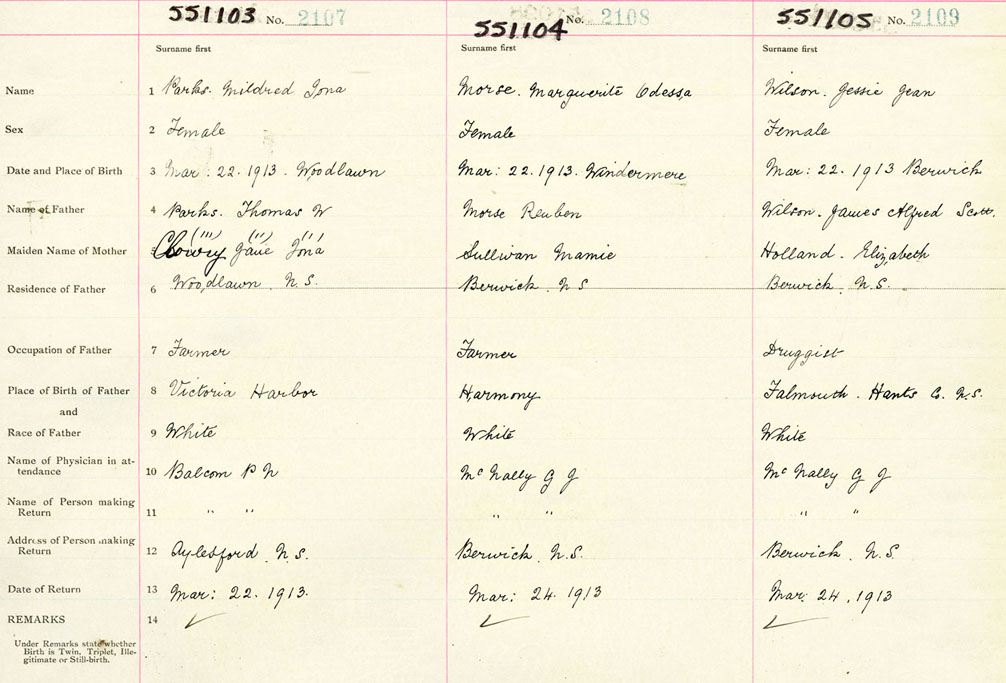 551103 No. 2107 551104 No. 2108 551105 No. 2109
Surname first Surname first Surname first
Name 1 Parks. Mildred Iona Morse. Marguerite Odessa Wilson. Jessie Jean
Sex 2 Female Female Female
Date and Place of Birth 3 Mar: 22. 1913. Woodlawn Mar: 22. 1913. Windermere Mar: 22. 1913 Berwick
Name of Father 4 Parks. Thomas W Morse Reuben Wilson. James Alfred Scott.
(111) (11) (1)
Maiden Name of Mother 5 Clowry Jane Iona Sullivan Mamie Holland. Elizabeth
Residence of Father 6 Woodlawn. N.S. Berwick. N S Berwick. N.S.
Occupation of Father 7 Farmer Farmer Druggist
Place of Birth of Father 8 Victoria Harbor Harmony Falmouth. Hants Co. N.S.
and
Race of Father 9 White White White
Name of Physician in at-
tendance 10 Balcom P N McNally G J McNally G J
Name of Person making
Return 11 " " " " " "
Address of Person making
Return 12 Aylesford. N.S. Berwick. N.S. Berwick. N.S.
Date of Return 13 Mar: 22. 1913. Mar: 24. 1913 Mar: 24. 1913
REMARKS 14
Under Remarks state whether
Birth is Twin, Triplet, Ille-
gitimate or Still-birth.